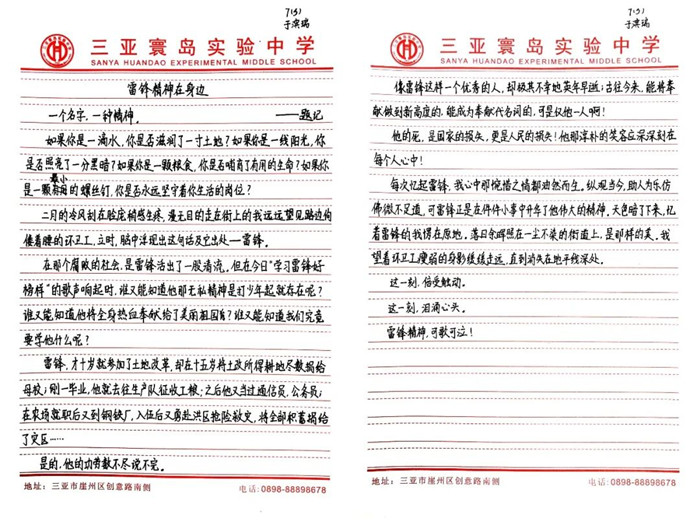 7(5)
于宾瑞
三亚寰岛实验中学
SANYA HUANDAO EXPERIMENTAL MIDDLE SCHOOL
雷锋精神在身边
一个名字，一种精神。 ——题记
如果你是一滴水，你是否滋润了一寸土地？如果你是一线阳光，你
是否照亮了一分黑暗？如果你是一颗粮食，你是否哺育了有用的生命？如果你
是一颗最小的螺丝钉，你是否永远坚守着你生活的岗位？
二月的冷风刮在脸庞稍感生疼，漫无目的走在街上的我远远望见路边佝
偻着腰的环卫工，立时，脑中浮现出这句话及它出处——雷锋。
在那个腐败的社会，是雷锋活出了一股清流。但在今日“学习雷锋好
榜样”的歌声响起时，谁又能知道他那无私精神是打少年起就存在呢？
谁又能知道他将全身热血奉献给了美丽祖国的？谁又能知道我们究竟
要学他什么呢？
雷锋，才十岁就参加了土地改革，却在十五岁将土改所得耕地尽数捐给
母校；刚一毕业，他就去往生产队征收工粮；之后他又当过通信员，公务员；
在农场就职后又到钢铁厂，入伍后又勇赴洪区抢险救灾，将全部积蓄捐给
了灾区……
是的，他的功劳数不尽说不完。
地址：三亚市崖州区创意路南侧 电话：0898-88898678
7(5)
于宾瑞
三亚寰岛实验中学
SANYA HUANDAO EXPERIMENTAL MIDDLE SCHOOL
像雷锋这样一个优秀的人，却极其不幸地英年早逝；古往今来，能将奉
献做到新高度的，能成为奉献代名词的，可是仅他一人啊！
他的死，是国家的损失，更是人民的损失！他那淳朴的笑容应深深刻在
每个人心中！
每次忆起雷锋，我心中那惋惜之情都油然而生。纵观当今，助人为乐仿
佛微不足道，可雷锋正是在件件小事中升华了他伟大的精神。天色暗了下来，忆
着雷锋的我愣在原地。落日余晖照在一尘不染的街道上，是那样的美。我
望着环卫工瘦弱的身影缓缓走远，直到消失在地平线深处。
这一刻，倍受触动。
这一刻，泪滴心头。
雷锋精神，可歌可泣！
地址：三亚市崖州区创意路南侧 电话：0898-88898678